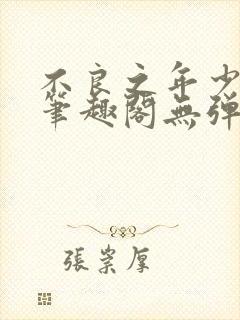 不良之年少
筆趣閣無弹
張崇厚